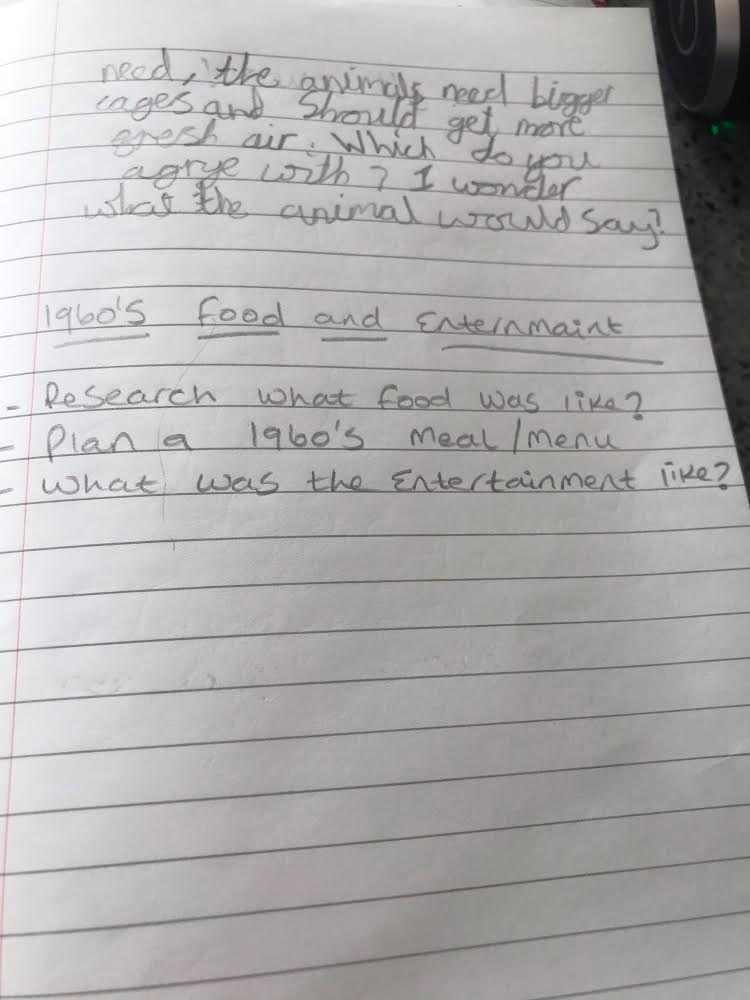 need, the animals need bigger
cages and should get more
fresh air. Which do you
agrye with? I wonder
what the animal would say?
1960's Food and Enternmaint
- Research what food was like?
- Plan a 1960's meal/menu
- What was the Entertainment like?